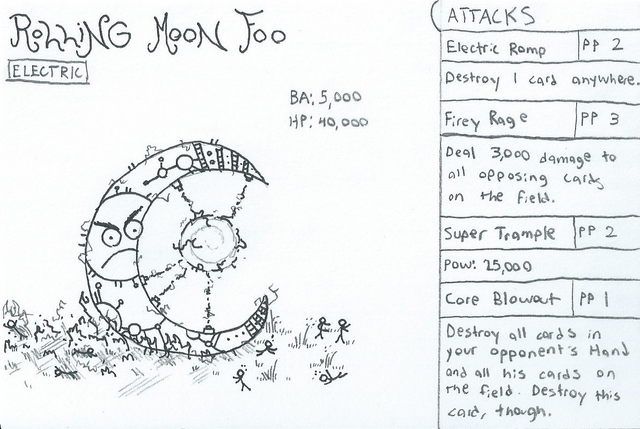 Rolling Moon Foo
ELECTRIC
BA: 5,000
HP: 40,000
ATTACKS
Electric Romp PP 2
Destroy 1 card anywhere.
Firey Rage PP 3
Deal 3,000 damage to
all opposing cards
on the field.
Super Trample PP 2
Pow: 25,000
Core Blowout PP 1
Destroy all cards in
your opponent's Hand
and all his cards on
the field. Destroy this
card, though.